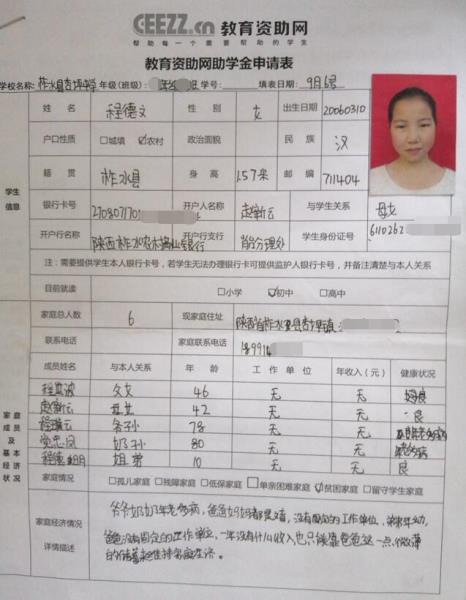 CEEZZ.cn 教育资助网
帮助每一个需要帮助的学生
教育资助网助学金申请表
学校名称: 柞水县 中学 年级(班级): 班 学号: 填表日期: 9月6号
学生信息
姓名 程德文 性别 女 出生日期 20060310
户口性质 □城镇 ☑农村 政治面貌 民族 汉
籍贯 柞水县 身高 1.57米 邮编 711404
银行卡号 270807170 开户人名 赵新云 与学生关系 母女
开户行名称 陕西柞水农 银行 开户支行 分理处 学生身份证号 6110262
注：需要提供学生本人银行卡号，若学生无法办理银行卡可提供监护人银行卡号，并备注清楚与本人关系
目前就读 □小学 ☑初中 □高中
家庭成员及基本经济状况
家庭总人数 6 现家庭住址 陕西省柞水县 镇
联系电话 家庭联系电话 18991
成员姓名 与本人关系 年龄 工作单位 年收入（元） 健康状况
程 波 父女 46 无 无
赵新云 母女 42 无 无 良
程 云 爷孙 78 无 无 多病
党忠凤 奶孙 80 无 无 多病
程德明 姐弟 10 无 无 良
家庭情况 □孤儿家庭 □残障家庭 □低保家庭 □单亲困难家庭 ☑贫困家庭 □留守学生家庭
家庭经济情况详情描述
爷爷奶奶年老多病，爸爸妈妈都是文盲，没有固定的工作单位，弟弟年幼，
爸爸没有固定的工作单位，一年没有什么收入也只能靠爸爸这一点微薄
的 来维持家庭生活。